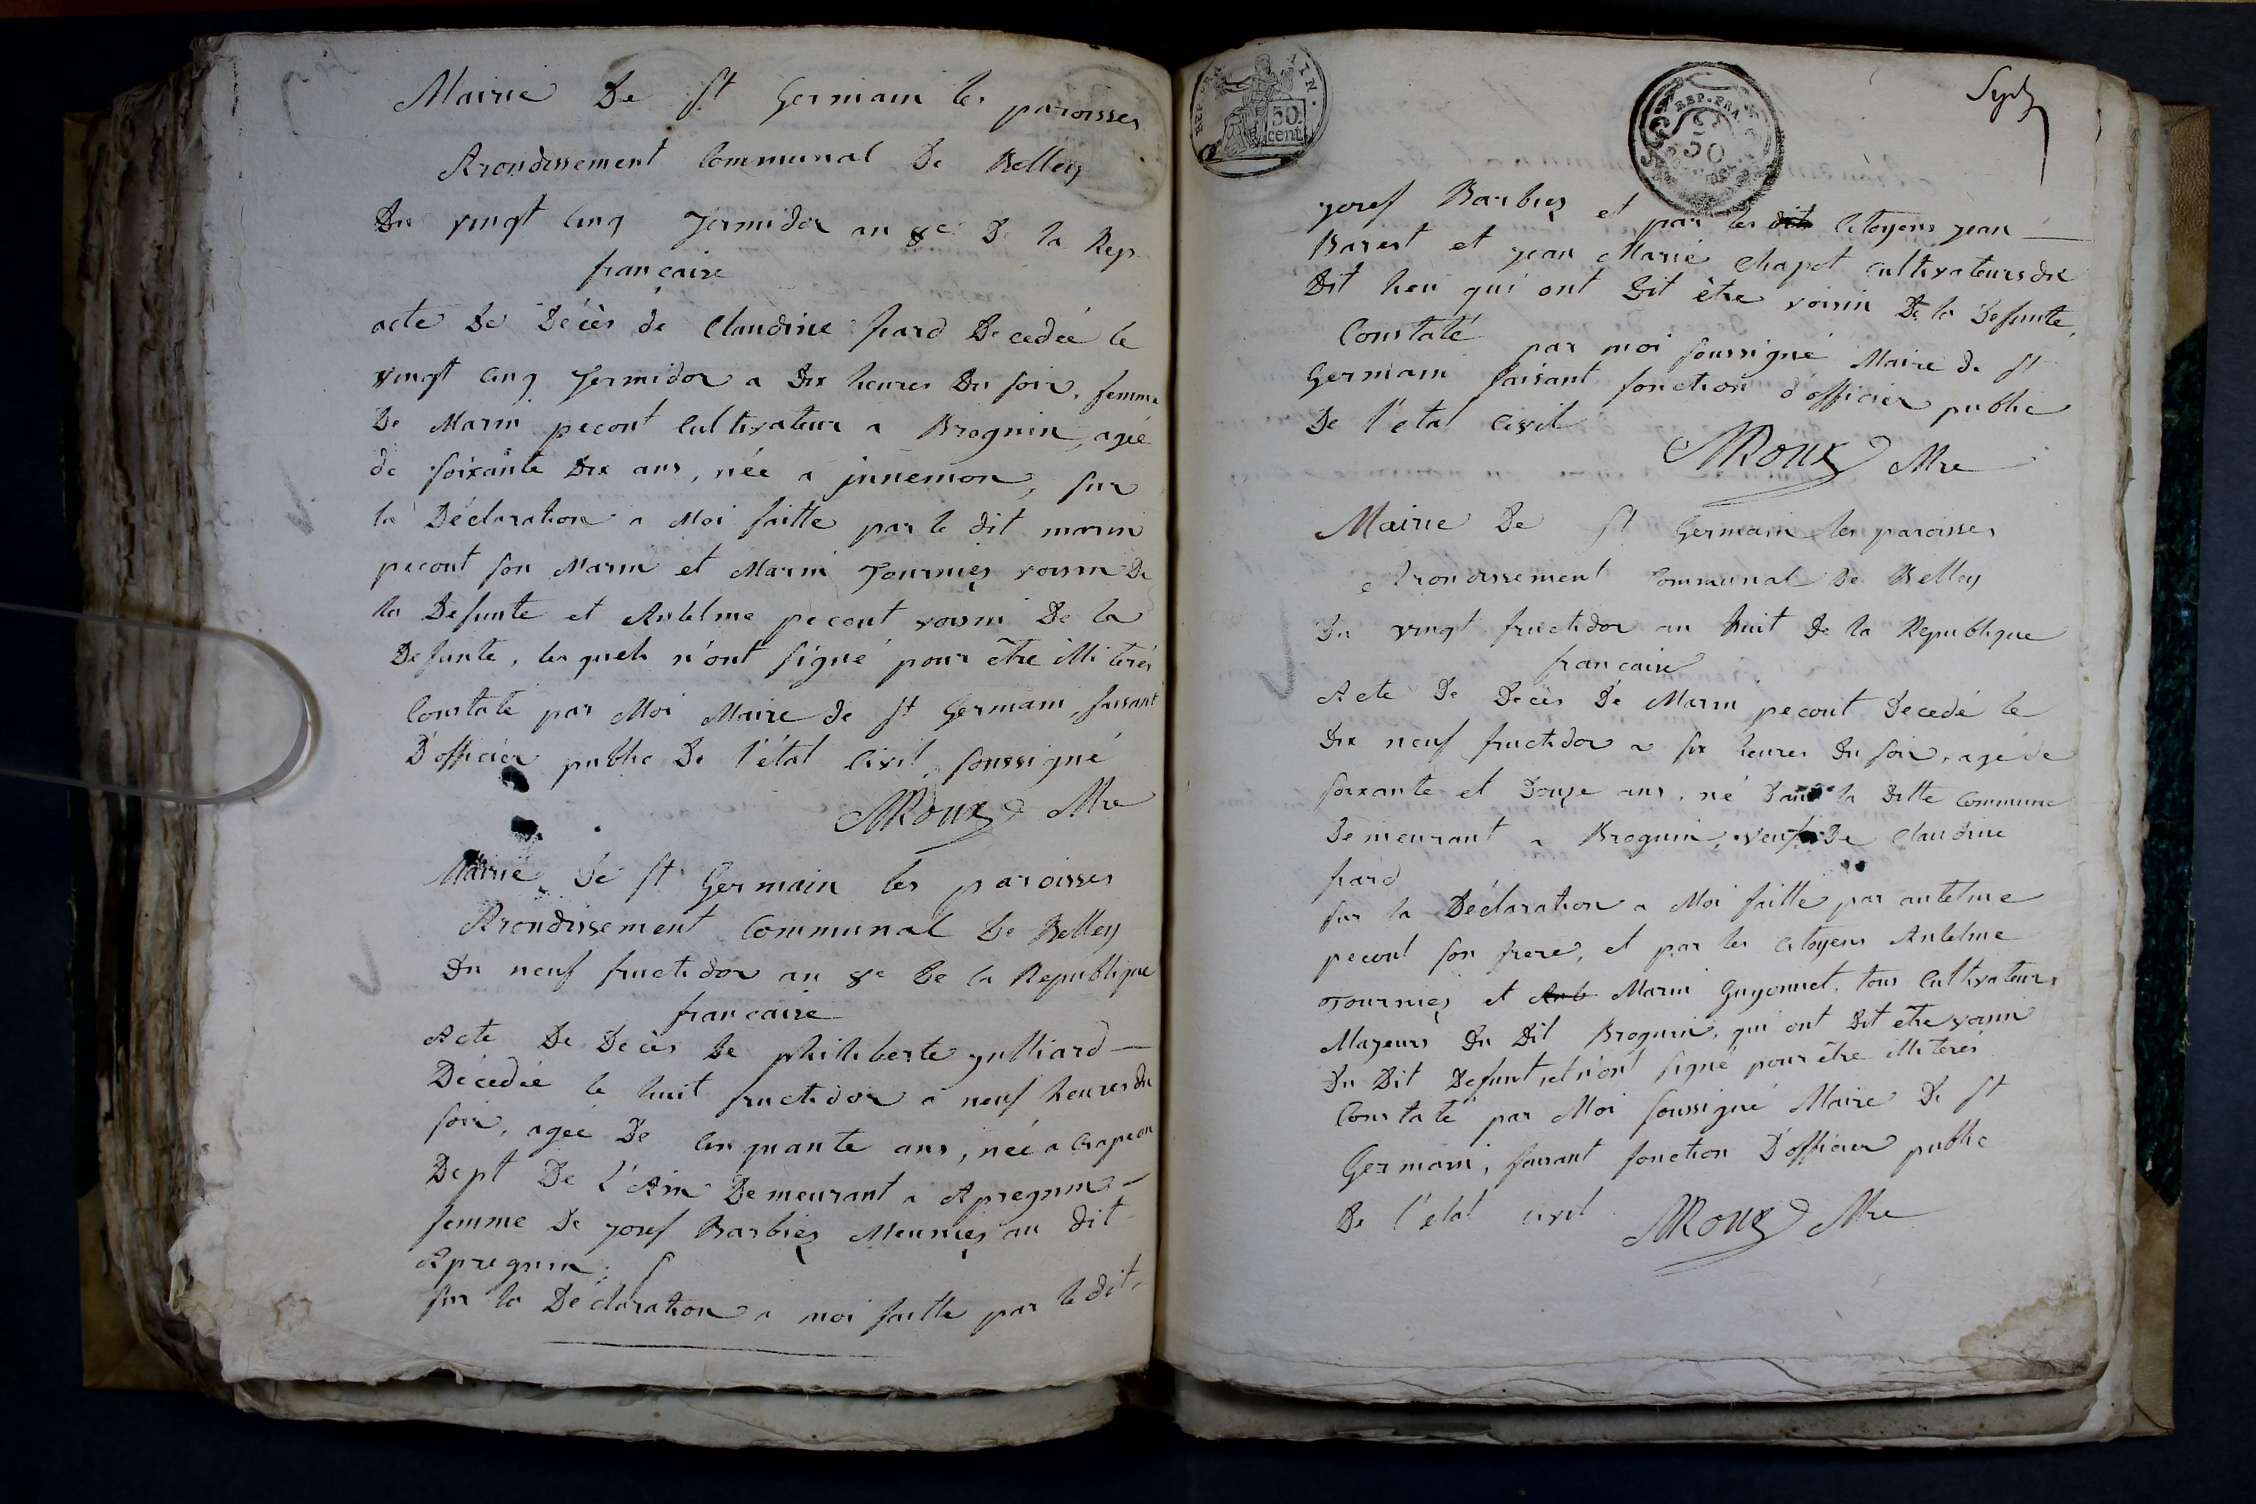 Mairie De St Germain les paroisses
Arondissement Communal De Belley
Du vingt cinq Termidor an 8e De la Rep
francaise
acte De Décès de Claudine frard Decedée le
vingt cinq Termidor a Dix heures Du soir, femme
De Marin pecout Cultivateur a Brognin, agée
de soixante Dix ans, née a jnnemon, sur
la Déclaration a Moi faitte par le dit marin
pecout son Marin et Marin Tournier voisin De
la Defunte et Antelme pecout voisin De la
Defunte, les quels n'ont signé pour être illiterés
Constaté par Moi Maire de St Germain, faisant
D'officier public De l'état Civil, soussigné
Roux Mre
Mairie De St Germain les paroisses
Arondissement Communal De Belley
Du neuf fructidor an 8e De la Republique
francaise
Acte De Décès De philiberte jullliard
Décedée le huit fructidor a neuf heures du
soir, agée De Cinquante ans, née a Crapeou
Dept De l'Ain Demeurant a Apregnin
femme De josef Barbier Meunier au dit
Apregnin
sur la Déclaration a moi faitte par le dit
REP. FRA
50
cent.
REP. FRA
50
Sept
josef Barbier et par les dits Citoyens jean
Barest et jean Marie Chapot cultivateurs du
Dit lieu qui ont Dit être voisin De la Defunte,
Constaté par moi soussigné Maire de St
Germain faisant fonction d'officier public
De l'etat Civil
Roux Mre
Mairie De St Germain les paroisses
Arondissement Communal De Belley
Du vingt fructidor an huit De la Republique
francaise
Acte De Décès De Marin pecout Decedé le
Dix neuf fructidor a six heures Du soir, agé de
soixante et Douze ans, né Dans la Ditte Commune
Demeurant a Brognin, veuf De Claudine
frard
sur la Déclaration a Moi faitte par antelme
pecout son frere, et par les Citoyens Antelme
Tournier et Ant Marin Guyonnet, tous Cultivateurs
Majeurs Du Dit Brognin, qui ont Dit etre voisin
Du Dit Defunt, et n'ont signé pour être illiterés
Constaté par Moi soussigné Maire De St
Germain, faisant fonction D'officier public
De l'etat civil
Roux Mre